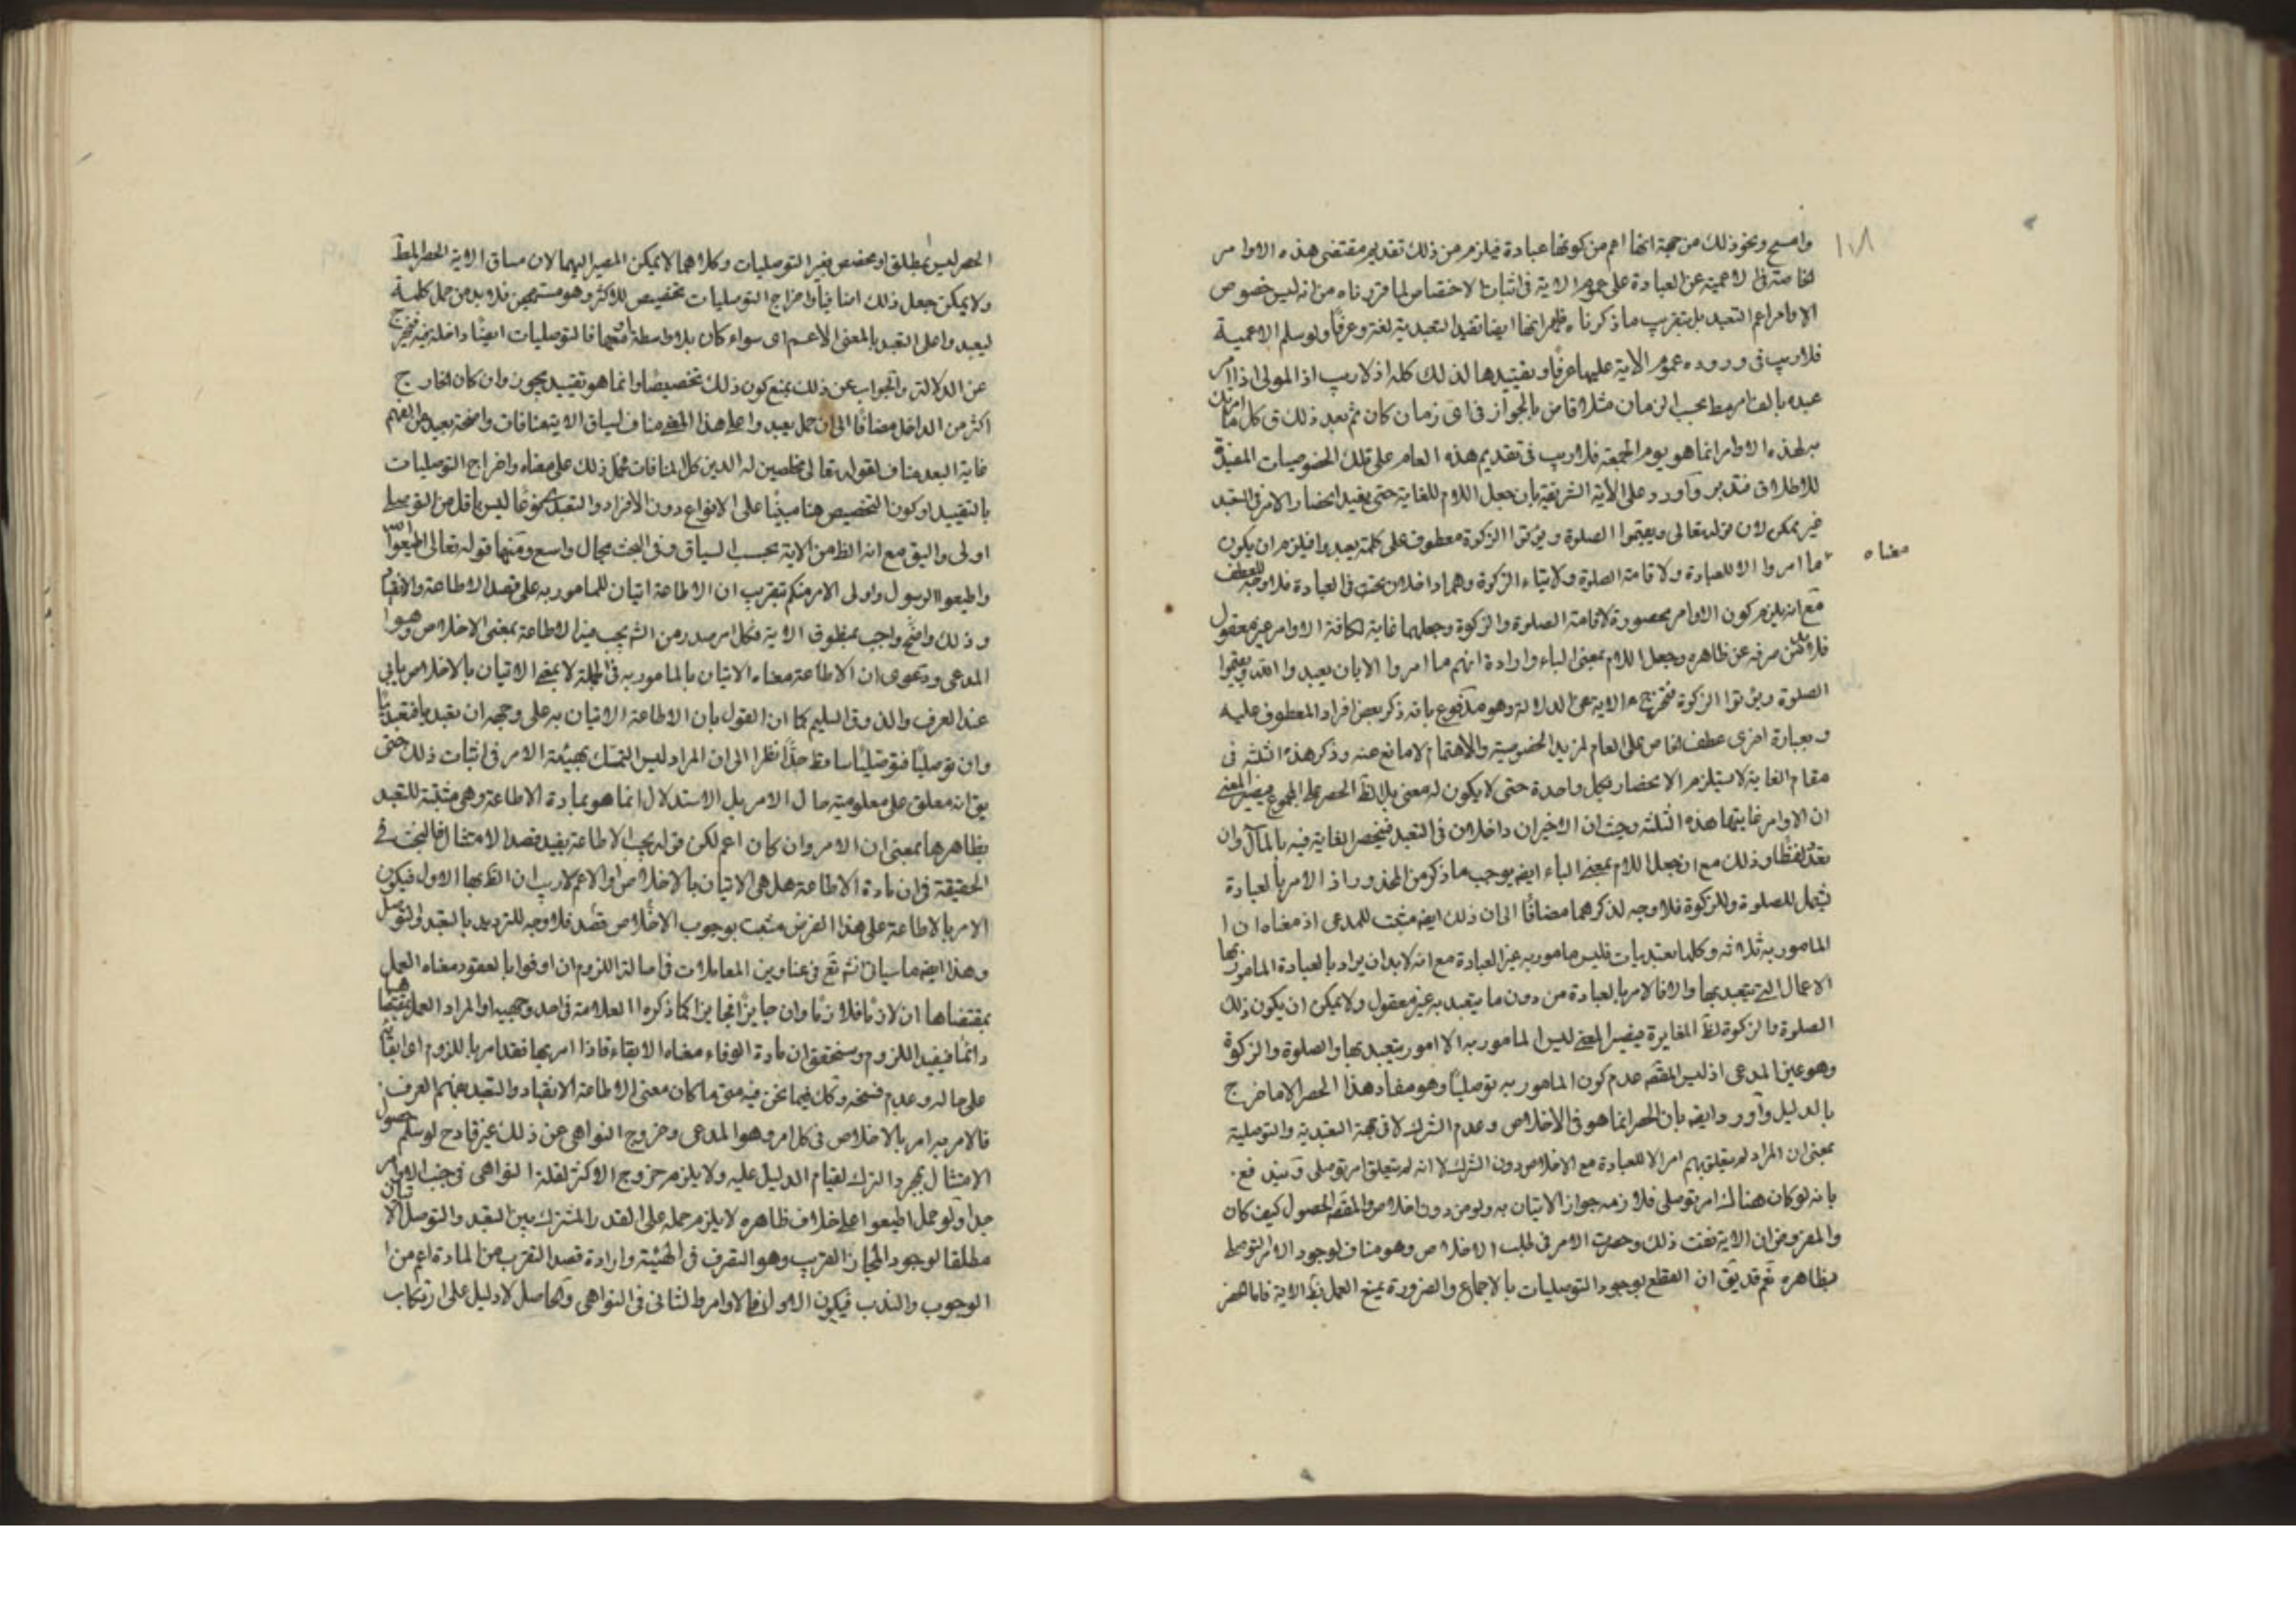 ١٠٨
وامسح ونحو ذلك من جهة انها اعم من كونها عبادة فيلزم من ذلك تقديم مقتضى هذه الاوامر
الخاصة في الاعمية عن العبادة على عموم الاية في اثبات الاختصاص لما قررناه من انه ليس خصوص
الاوامر اعم التعبد بل بتقريب ما ذكرناه ظهر انها ايضا تفيد التعبدية لغة وعرفا ولو سلم الاعمية
فلا ريب في ورود عموم الاية عليها عرفا وتقييدها لذلك كله اذ لا ريب اذ المولى اذا امر
عبده بالف امر مط بحسب الزمان مثلا قاض بالجواز في اى زمان كان ثم بعد ذلك ق كل ما امرتك
به لهذه الاوامر انما هو يوم الجمعة فلا ريب في تقديم هذه العام على تلك الخصوصيات المفيدة
للاطلاق فتدبر وآورد على الآية الشريفة بان جعل اللام للغاية حتى يفيد انحصار الامر في التعبد
غير ممكن لان قوله تعالى ويقيموا الصلوة ويؤتوا الزكوة معطوف على كلمة يعبدوا فيلزم ان يكون
معناه
ما امروا الا للعبادة ولاقامة الصلوة ولايتاء الزكوة وهما داخلان تحت العبادة فلا وجه للعطف
مع انه يلزم كون الاوامر محصورة لاقامة الصلوة والزكوة وجعلهما غاية لكافة الاوامر غير معقول
فلا بد من صرفه عن ظاهره وجعل اللام بمعنى الباء وارادة انهم ما امروا الا بان يعبدوا الله ويقيموا
الصلوة ويؤتوا الزكوة فتخرج الاية عن الدلالة وهو مدفوع بانه ذكر بعض افراد المعطوف عليه
وبعبارة اخرى عطف الخاص على العام لمزيد الخصوصية والاهتمام لا مانع عنه وذكر هذه الثلثة في
مقام الغاية لا يستلزم الانحصار بكل واحدة حتى لا يكون له معنى بل الظ الحصر في المجموع فيصير المعنى
ان الاوامر غايتها هذه الثلثة وحيث ان الاخيران داخلان في التعبد فينحصر الغاية فيه بالمآل وان
تعدد لفظا وذلك مع ان جعل اللام بمعنى الباء ايضا يوجب ما ذكر من المحذور اذ الامر بالعبادة
يشمل للصلوة وللزكوة فلا وجه لذكرهما مضافا الى ان ذلك ايضا مثبت للمدعى اذ معناه ان ا
المامور به ثلاثة وكلها تعبديات فليس مامور به غير العبادة مع انه لا بد ان يراد بالعبادة المامور بها
الاعمال التي يتعبد بها والا فالامر بالعبادة من دون ما يتعبد به غير معقول ولا يمكن ان يكون ذلك
الصلوة والزكوة لظ المغايرة فيصير المعنى ليس المامور به الا امور يتعبد بها والصلوة والزكوة
وهو عين المدعى اذ ليس المقصد عدم كون المامور به توصليا وهو مفاد هذا الحصر الا ما خرج
بالدليل وآورد ايضا بان الحصر انما هو في الاخلاص وعدم الشرك لا في جهة التعبدية والتوصلية
بمعنى ان المراد لم يتعلق بهم امر الا للعبادة مع الاخلاص دون الشرك لا انه لم يتعلق امر توصلي ويندفع
بانه لو كان هناك امر توصلي فلازمه جواز الاتيان به ولو من دون اخلاص والمقصد الحصول كيف كان
والمفروض ان الاية نفت ذلك وحصرت الامر في طلب الاخلاص وهو مناف لوجود الامر التوصلي
بظاهره نعم قد يق ان القطع بوجود التوصليات بالاجماع والضرورة يمنع العمل بظ الاية فاما هذا
الحصر ليس بمطلق او مخصص بغير التوصليات وكلاهما لا يمكن المصير اليهما لان مساق الاية الحصر المط
ولا يمكن جعل ذلك اضافيا واخراج التوصليات تخصيص للاكثر وهو مستهجن فلا بد من حمل كلمة
ليعبدوا على التعبد بالمعنى الاعم اى سواء كان بلا واسطة ام معها فالتوصليات ايضا داخلة فيه فتخرج
عن الدلالة والجواب عن ذلك بمنع كون ذلك تخصيصا وانما هو تقييد يجوز وان كان الخارج
اكثر من الداخل مضافا الى ان حمل يعبدوا على هذا المعنى مناف لسياق الاية منافات واضحة بعيد عن الفهم
غاية البعد مناف لقوله تعالى مخلصين له الدين كل المنافات فحمل ذلك على معناه واخراج التوصليات
بالتقييد او كون التخصيص هنا مبنيا على الانواع دون الافراد والتعبد مجموعا ليس باقل من التوصلي
اولى واليق مع انه الظ من الاية بحسب السياق وفي البحث مجال واسع ومنها قوله تعالى اطيعوا الله
واطيعوا الرسول واولى الامر منكم بتقريب ان الاطاعة اتيان للمامور به على قصد الاطاعة والانقياد
وذلك واضح واجب بمنطوق الاية فكل امر صدر من الشرع يجب فيه الاطاعة بمعنى الاخلاص وهو ا
المدعى ودعوى ان الاطاعة معناه الاتيان بالمامور به في الجملة لا بمعنى الاتيان بالاخلاص يابى
عنه العرف والذوق السليم كما ان القول بان الاطاعة الاتيان به على وجهه ان تعبديا فتعبديا
وان توصليا فتوصليا ساقط جدا نظرا الى ان المراد ليس التمسك بهيئة الامر في اثبات ذلك حتى
يق انه معلق على معلومية حال الامر بل الاستدلال انما هو بمادة الاطاعة وهى مثبتة للتعبد
بظاهرها بمعنى ان الامر وان كان اعم لكن قوله يجب الاطاعة يفيد قصد الامتثال فالبحث في
الحقيقة في ان مادة الاطاعة هل هى الاتيان بالاخلاص او الاعم لا ريب ان الظ بها الاول فيكون
الامر بالاطاعة على هذا الفرض مثبت بوجوب الاخلاص قصد فلا وجه للترديد بالتعبد والتوصل
وهذا ايضا ما سياتي انش تع في عناوين المعاملات في اصالة اللزوم ان اوفوا بالعقود معناه العمل
بمقتضاها ان لازما فلازما وان جايزا فجايزا كما ذكره العلامة في احد وجهيه او المراد العمل بمقتضاها
دائما فيفيد اللزوم وسنحقق ان مادة الوفاء معناه الابقاء فاذا امر بها فقد امر باللزوم اى ابقائه
على حاله وعدم فسخه وكك فيما نحن فيه متى ما كان معنى الاطاعة الانقياد والتعبد بفهم العرف
فالامر به امر بالاخلاص في كل امر وهو المدعى وخروج النواهى عن ذلك غير قادح لو سلم حصول
الامتثال بمجرد الترك لقيام الدليل عليه ولا يلزم خروج الاكثر لقلة النواهى في جنب الاوامر
جدا ولو حمل اطيعوا على خلاف ظاهره لا يلزم حمله على القدر المشترك بين التعبد والتوصل
مطلقا لوجود المجاز القريب وهو التصرف في الهيئة وارادة قصد التقرب من المادة اعم من ا
الوجوب والندب فيكون الاول في الاوامر والثاني في النواهى والحاصل لا دليل على ارتكاب